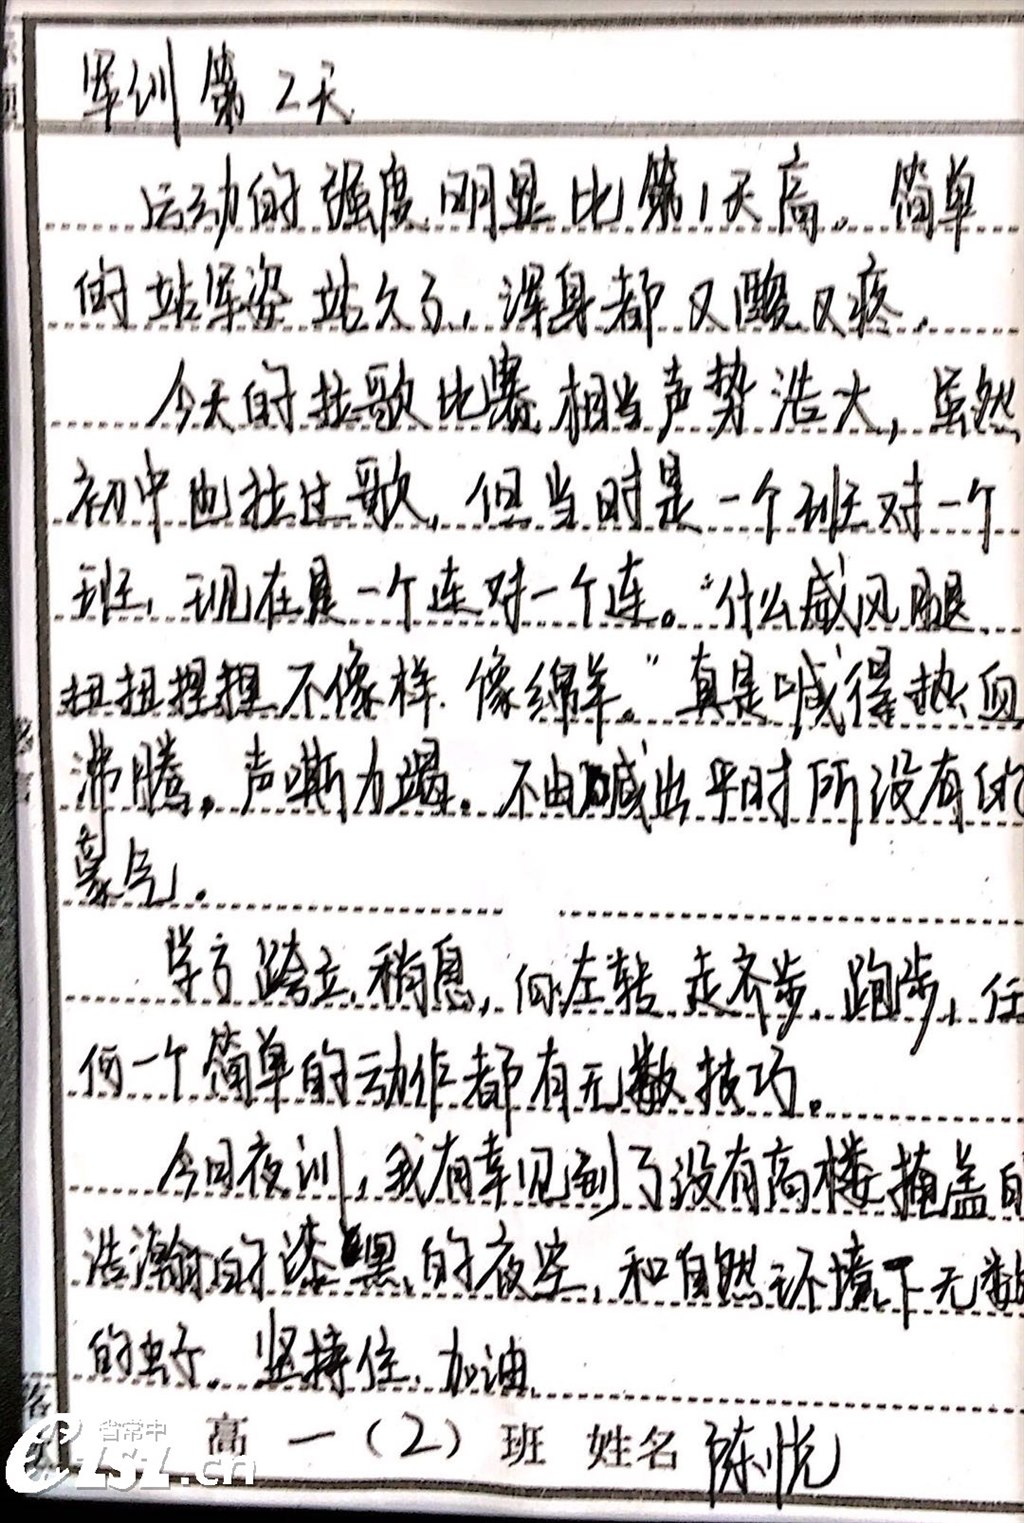 军训第2天
运动的强度明显比第1天高。简单
的站军姿站久了,浑身都又酸又疼.
今天的拉歌比赛相当声势浩大,虽然
初中也拉过歌,但当时是一个班对一个
班,现在是一个连对一个连。"什么威风腿
扭扭捏捏不像样.像绵羊。"真是喊得热血
沸腾,声嘶力竭.不由喊出平时所没有的
豪气.
学了跨立,稍息,向左转.走齐步,跑步,任
何一个简单的动作都有无数技巧.
今日夜训,我有幸见到了没有高楼掩盖的
浩瀚的漆黑的夜空,和自然环境下无数
的虾.坚持住.加油
高一(2)班 姓名 陈悦
省常中
CZSZ.cn